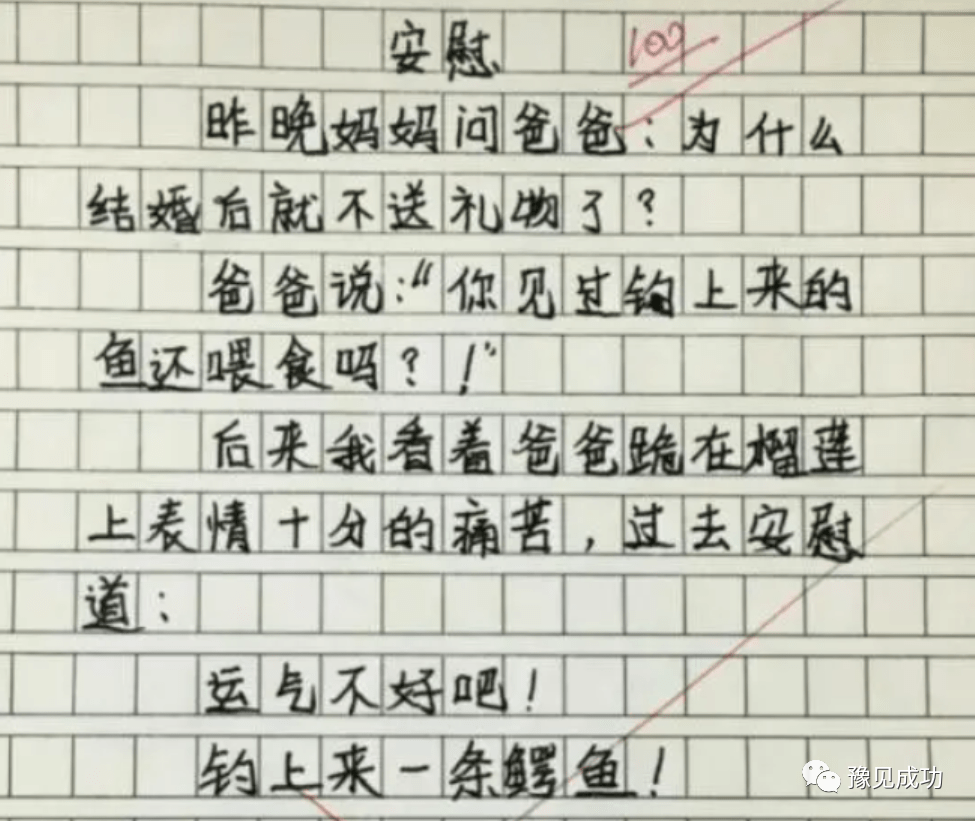 安慰 100
昨晚妈妈问爸爸:为什么
结婚后就不送礼物了?
爸爸说:“你见过钓上来的
鱼还喂食吗?!”
后来我看着爸爸跪在榴莲
上表情十分的痛苦,过去安慰
道:
运气不好吧!
钓上来一条鳄鱼!
豫见成功